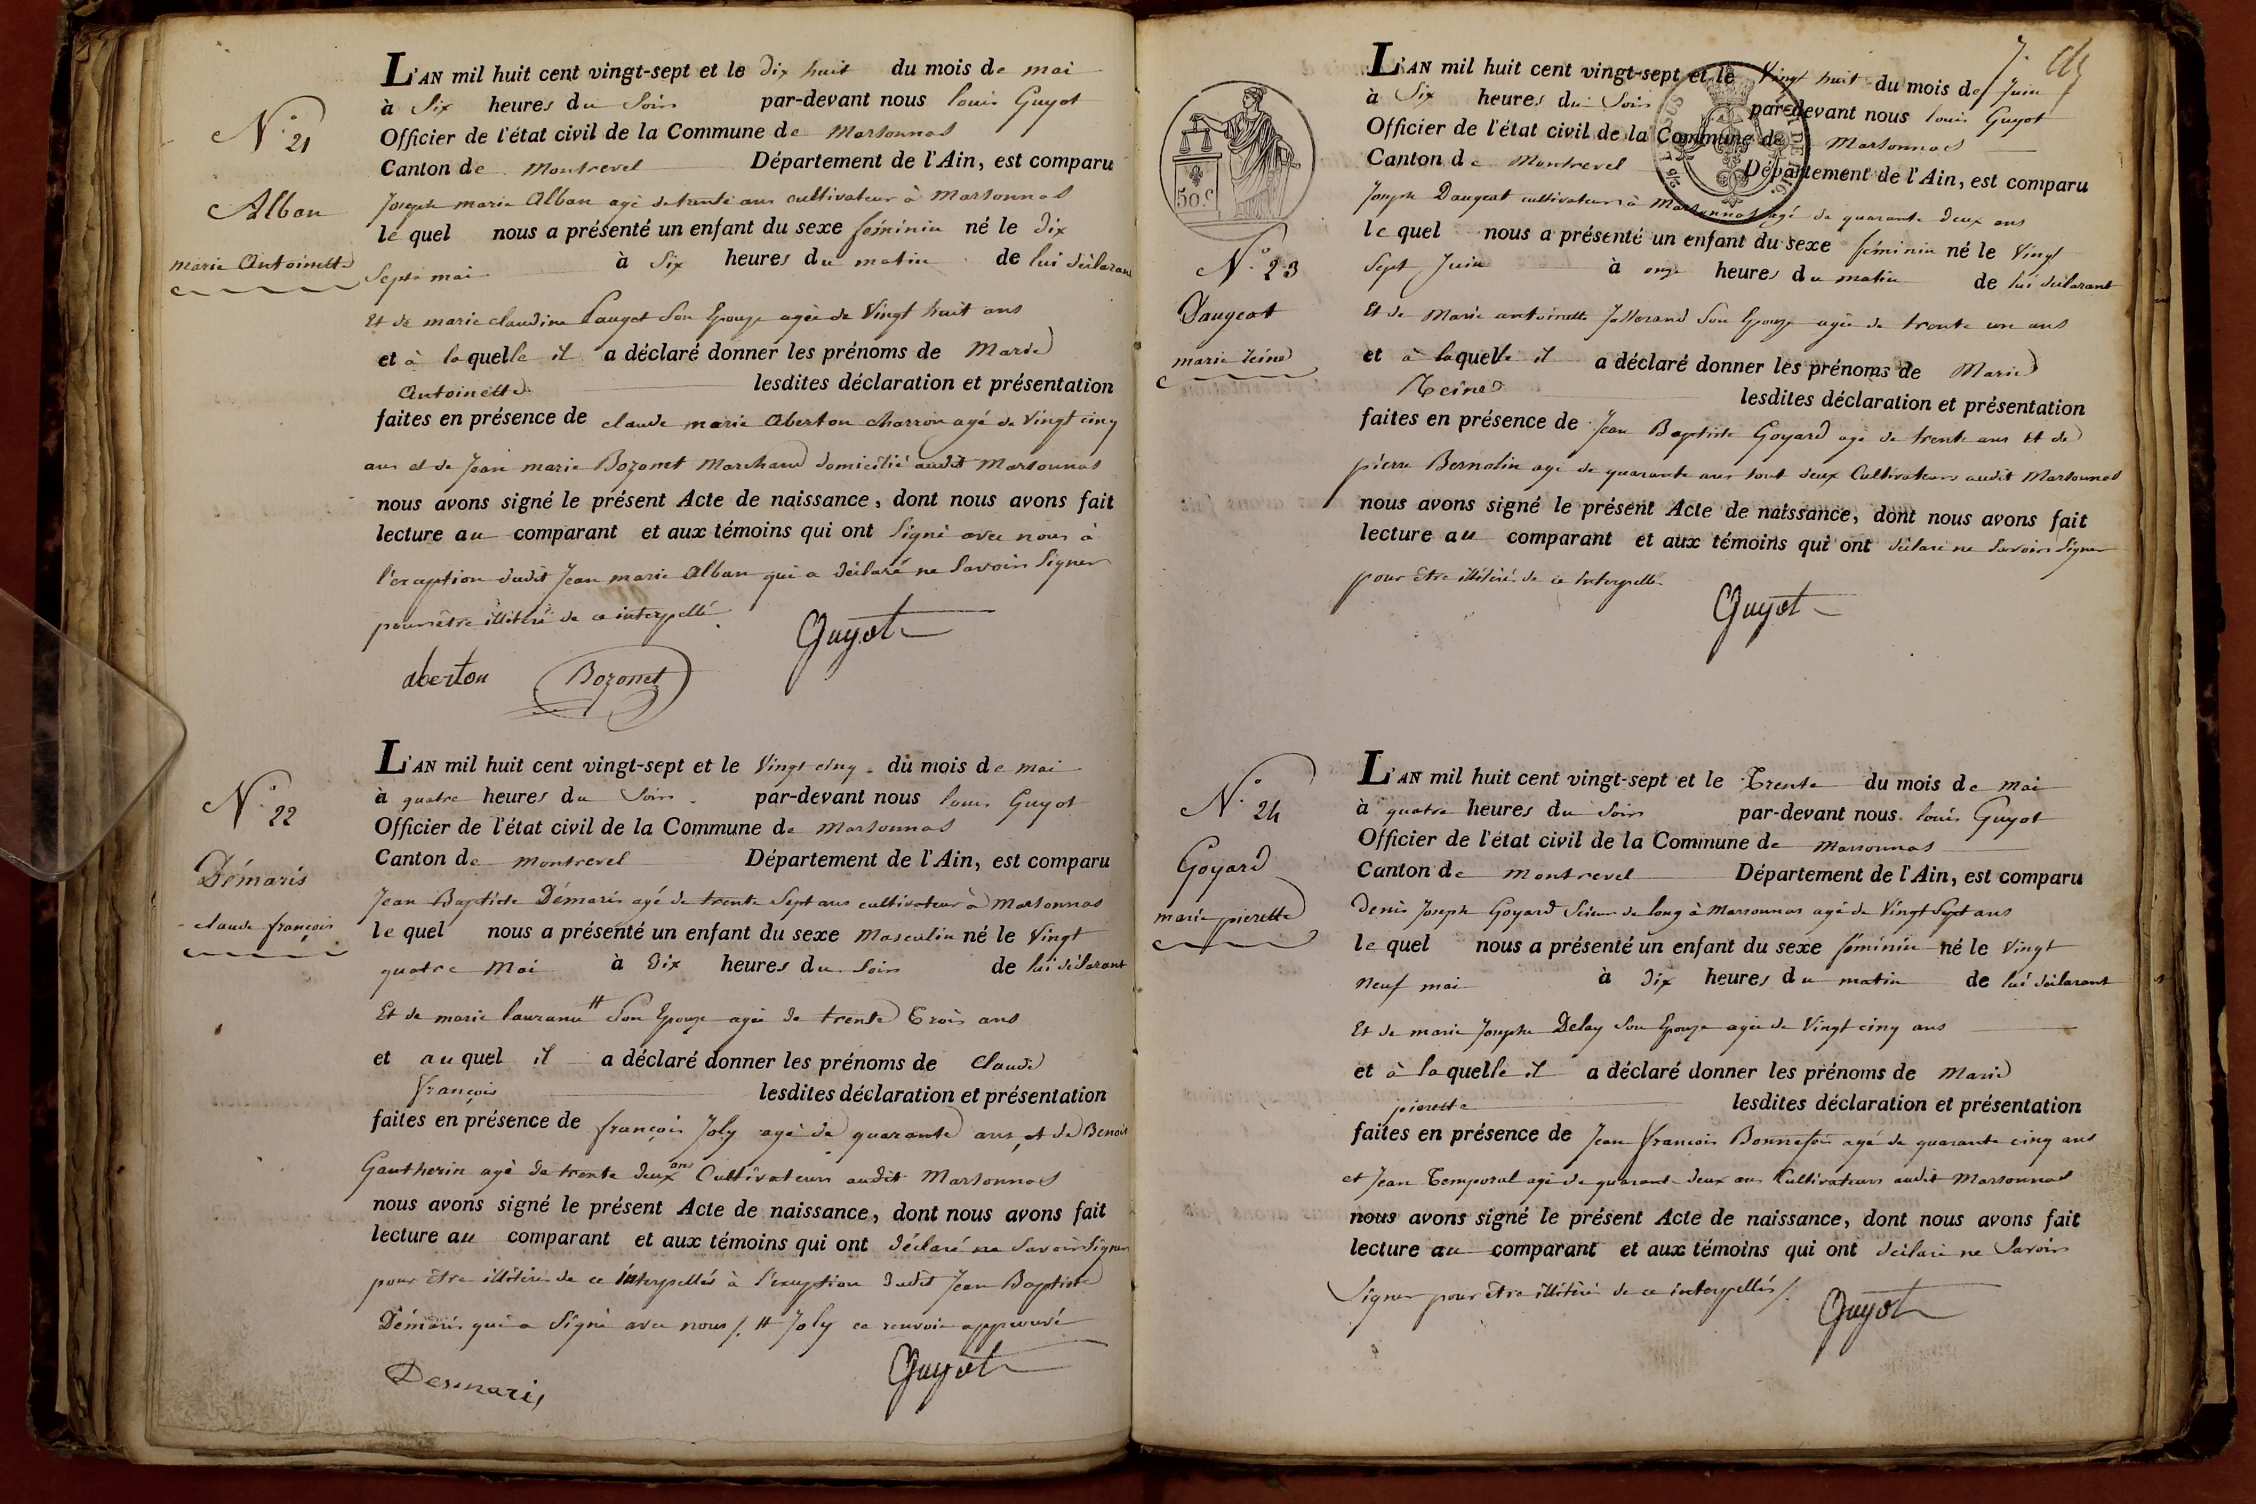 N.o 21
Alban
marie Antoinette
L'AN mil huit cent vingt-sept et le dix huit du mois de mai
à Six heures du Soir par-devant nous louis Guyot
Officier de l'état civil de la Commune de Marsonnas
Canton de Montrevel Département de l'Ain, est comparu
Joseph marie Alban agé de trente ans cultivateur à Marsonnas
le quel nous a présenté un enfant du sexe féminin né le dix
Sept mai à Six heures du matin de lui déclarant
Et de marie claudine Pauget Son Epouze agée de Vingt huit ans
et à laquelle il a déclaré donner les prénoms de Marie
Antoinette lesdites déclaration et présentation
faites en présence de claude marie Aberton charron agé de Vingt cinq
ans et de Jean marie Bozonet Marchand domicilié audit Marsonnas
nous avons signé le présent Acte de naissance, dont nous avons fait
lecture au comparant et aux témoins qui ont Signé avec nous à
l'exception dudit Jean marie Alban qui a déclaré ne Savoir Signer
pour être illitéré de ce interpellé
Guyot
aberton Bozonet
N.o 22
Démaris
claude françois
L'AN mil huit cent vingt-sept et le Vingt cinq du mois de mai
à quatre heures du Soir par-devant nous louis Guyot
Officier de l'état civil de la Commune de Marsonnas
Canton de Montrevel Département de l'Ain, est comparu
Jean Baptiste Démaris agé de trente Sept ans cultivateur à Marsonnas
le quel nous a présenté un enfant du sexe Masculin né le Vingt
quatre Mai à Dix heures du Soir de lui déclarant
Et de marie # Son Epouze agée de trente Trois ans
et auquel il a déclaré donner les prénoms de Claude
françois lesdites déclaration et présentation
faites en présence de françois Joly agé de quarante ans, et de Benoit
Gautherin agé de trente deux ans Cultivateurs audit Marsonnas
nous avons signé le présent Acte de naissance, dont nous avons fait
lecture au comparant et aux témoins qui ont déclaré ne Savoir Signer
pour être illitéré de ce interpellés à l'exception dudit Jean Baptiste
Démaris qui a Signé avec nous /. # Joly ce renvoie approuvé
Desmaris Guyot
7.
50.C
N.o 23
Daugeat
marie Reine
L'AN mil huit cent vingt-sept et le Vingt huit du mois de Juin
à Six heures du Soir par-devant nous louis Guyot
Officier de l'état civil de la Commune de Marsonnas
Canton de Montrevel Département de l'Ain, est comparu
Joseph Daugeat cultivateur à Marsonnas agé de quarante deux ans
le quel nous a présenté un enfant du sexe féminin né le Vingt
Sept Juin à onze heures du matin de lui déclarant
Et de Marie antoinette Son Epouze agée de trente un ans
et à laquelle il a déclaré donner les prénoms de Marie
Reine lesdites déclaration et présentation
faites en présence de Jean Baptiste Goyard agé de trente ans et de
pierre Bernolin agé de quarante ans tout deux Cultivateurs audit Marsonnas
nous avons signé le présent Acte de naissance, dont nous avons fait
lecture au comparant et aux témoins qui ont déclaré ne Savoir Signer
pour être illitéré de ce interpellé
Guyot
N.o 24
Goyard
marie pierette
L'AN mil huit cent vingt-sept et le Trente du mois de mai
à quatre heures du Soir par-devant nous louis Guyot
Officier de l'état civil de la Commune de Marsonnas
Canton de Montrevel Département de l'Ain, est comparu
Denis Joseph Goyard Scieur de long à Marsonnas agé de Vingt Sept ans
le quel nous a présenté un enfant du sexe féminin né le Vingt
neuf mai à Dix heures du matin de lui déclarant
Et de marie Josephe Delay Son Epouze agée de Vingt cinq ans
et à laquelle il a déclaré donner les prénoms de Marie
pierette lesdites déclaration et présentation
faites en présence de Jean françois Bonnefoi agé de quarante cinq ans
et Jean Temporal agé de quarante deux ans Cultivateurs audit Marsonnas
nous avons signé le présent Acte de naissance, dont nous avons fait
lecture au comparant et aux témoins qui ont déclaré ne Savoir
Signer pour être illitéré de ce interpellés /.
Guyot